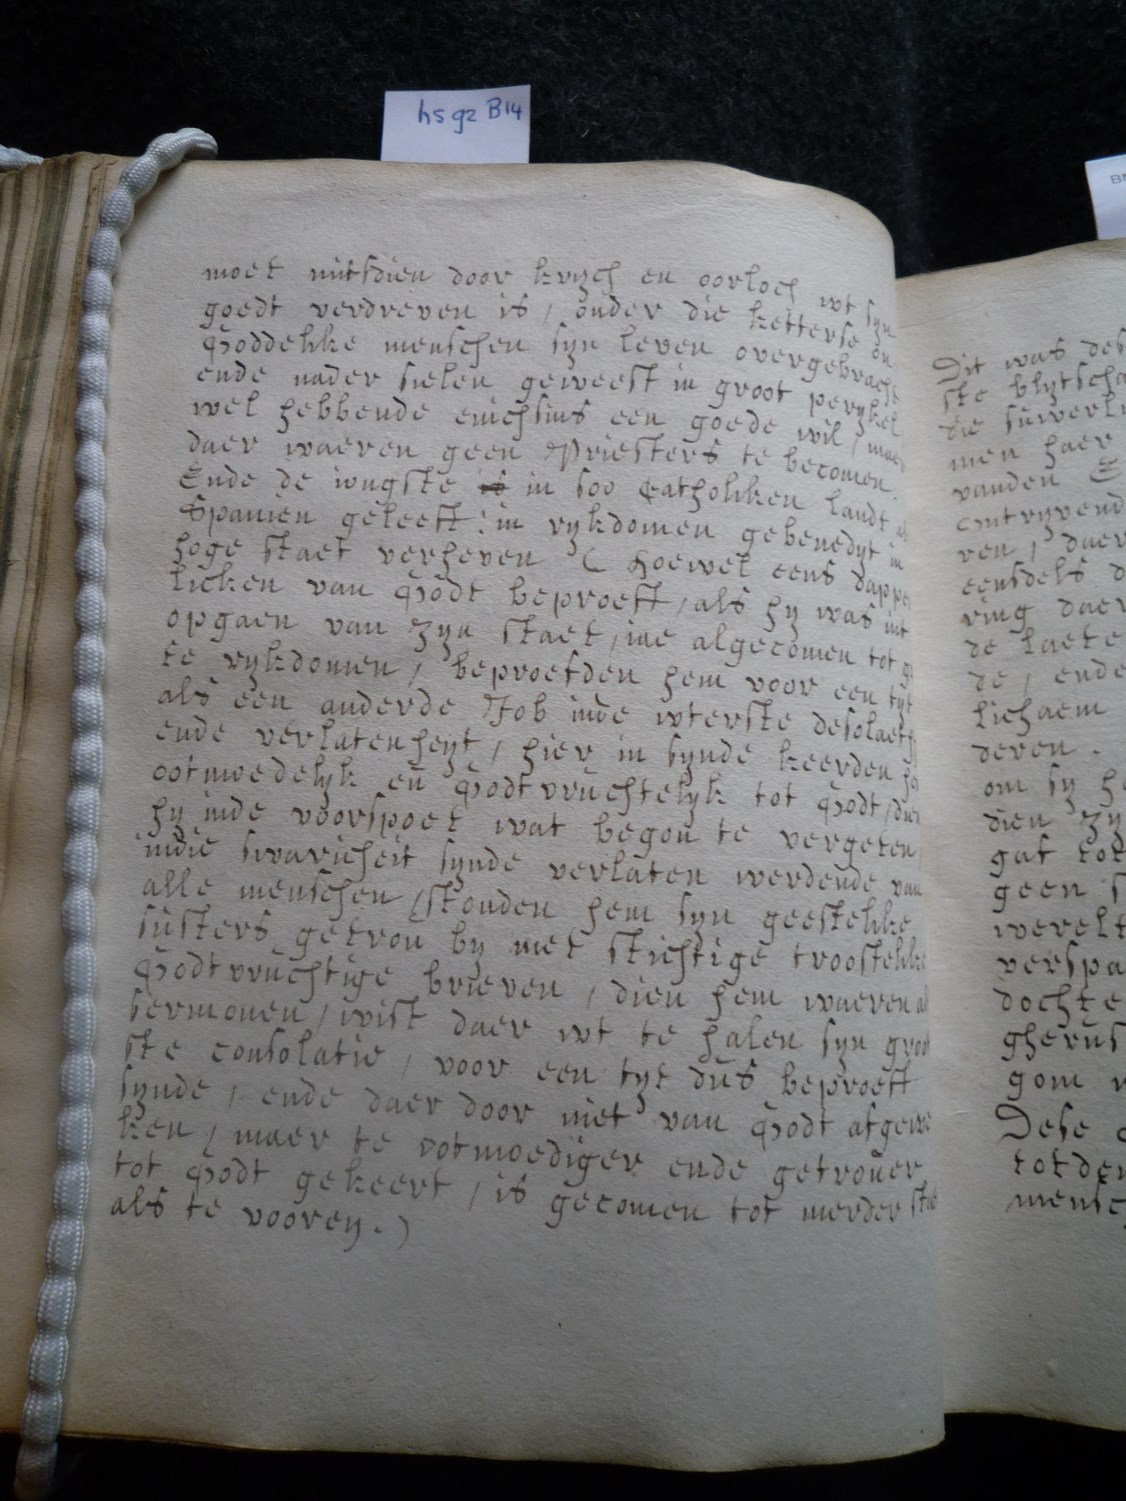 hs 92 B14
moet mitsdien door krijch en oorloch wt syn
goedt verdreven is, onder die ketterse on
Goddelikke menschen syn leven overgebracht
ende nader sielen geweest in groot perykel
wel hebbende enichsins een goede wil, maer
daer waeren geen Priesters te becomen.
Ende de iongste in soo Catholiken landt als
Spanien geleeft: in rykdomen gebenedyt in
hoge staet verheven ( hoewel eens dapper
licken van Godt beproeft, als hy was int
opgaen van zyn staet, algecomen tot
te rykdomen, beproefden hem voor een tyt
als een anderde Job inde wterste desolaety
ende verlatenheyt, hier in synde keerden
ootmoedelyk en Godtvruchtelyk tot Godt, dien
hy inde voorspoet wat begon te vergeten
indie swaricheit synde verlaten werdende van
alle menschen, stonden hem syn geestelikke
susters getrou by met stichtige troostelikke
Godtvruchtige brieven, dien hem waeren als
sermonen, wist daer wt te halen syn groot
ste consolatie, voor een tyt dus beproeft
synde, ende daer door niet van Godt afgewe
ken, maer te ootmoediger ende getrouer
tot Godt gekeert, is gecomen tot meerder staet
als te vooren.)
Dit was des
ste blytscha
die suverli
men haer
vanden
Contryvend
ren, daer
eensdels d
ring daer
de laete
de, ende
lichaem
deren.
om sy h
dien zy
gaf tot
geen s
werelt
verspa
dochte
gherus
gom
Dese
totden
mensc